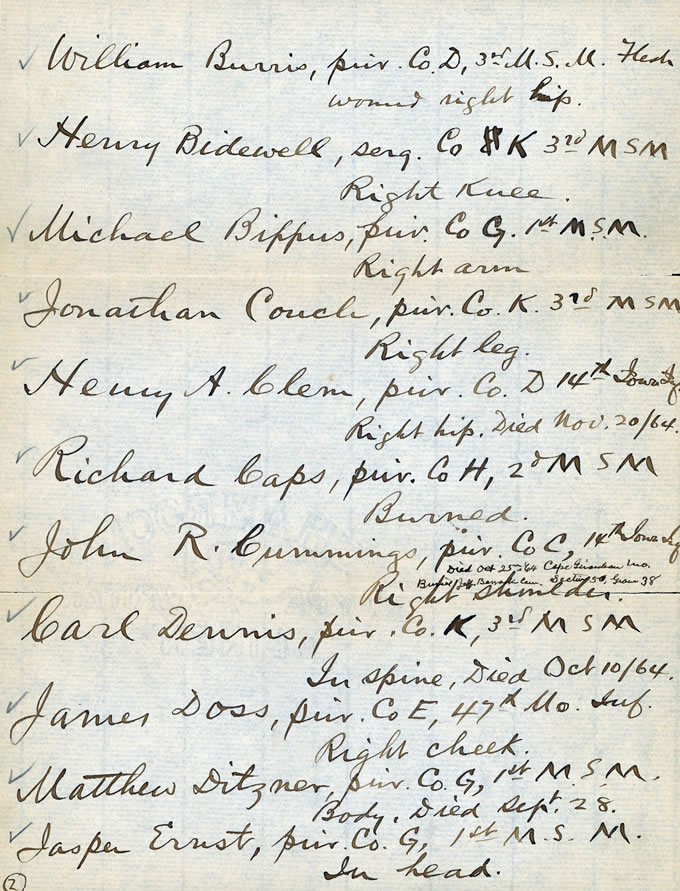 William Burris, priv. Co. D, 3rd M. S. M. Flesh
wound right hip.
Henry Bidewell, serg. Co K 3rd M S M
Right Knee.
Michael Bippus, priv. Co G. 1st M.S.M.
Right arm
Jonathan Couch, priv. Co. K. 3rd M S M
Right leg.
Henry A. Clem, priv. Co. D 14th Iowa
Right hip. Died Nov. 20/64.
Richard Caps, priv. Co H, 2d M S M
Burned.
John R. Cummings, priv. Co C, 14th Iowa
Died Oct 25-'64 Cape Girardeau Mo.
Buried Jeff. Cem. Grave 38
Right shoulder.
Carl Dennis, priv. Co. K, 3rd M S M
In spine, Died Oct 10/64.
James Doss, priv. Co E, 47th Mo. Inf.
Right cheek.
Matthew Ditzner, priv. Co. G, 1st M. S. M.
Body. Died Sept. 28.
Jasper Ernst, priv. Co. G, 1st M. S. M.
In head.
2